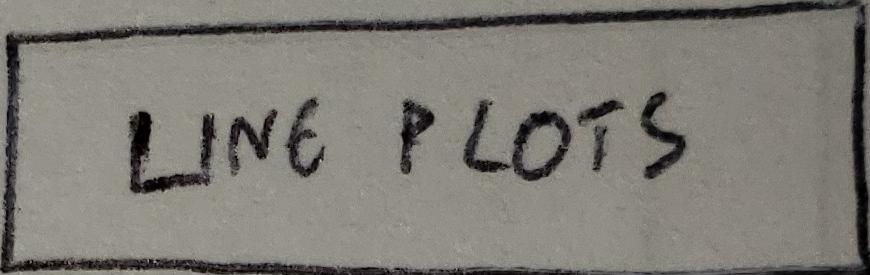 LINE PLOTS